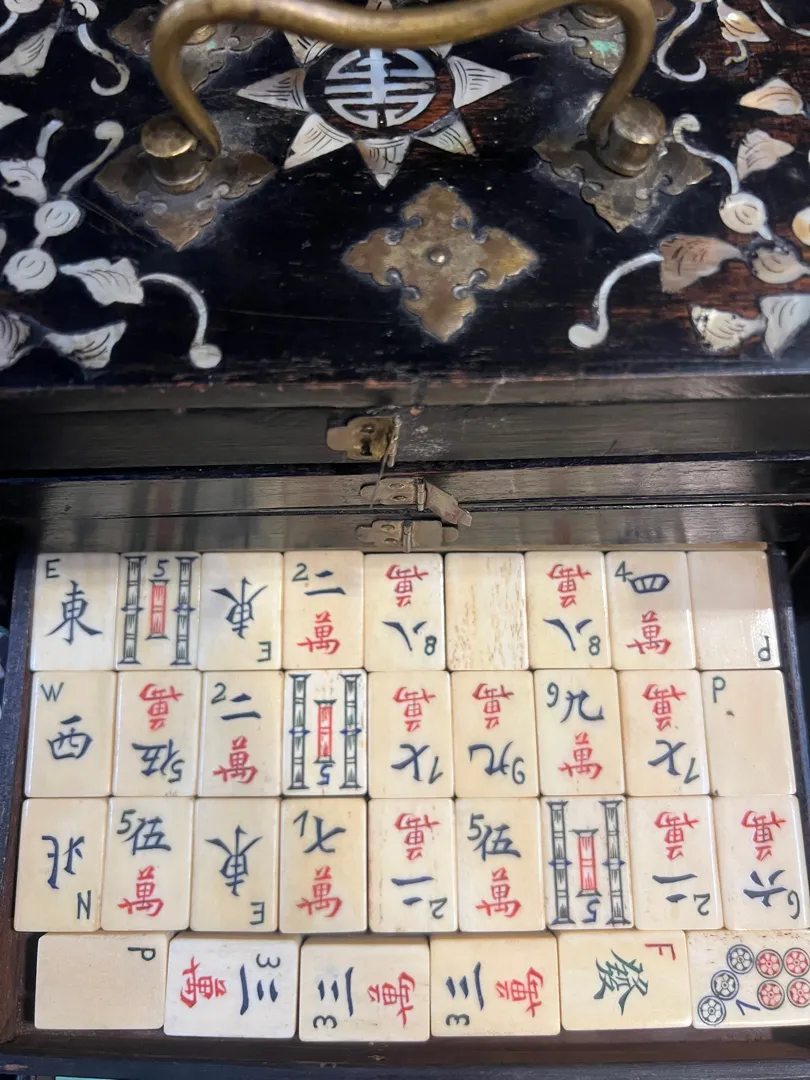 E
東
5
E
東
2 二
萬
8 八
萬
8 八
萬
4 四
萬
P
W
西
5 伍
萬
2 二
萬
5
7 七
萬
9 九
萬
9 九
萬
7 七
萬
P
N
北
5 伍
萬
E
東
7 七
萬
2 二
萬
5 伍
萬
5
2 二
萬
6 六
萬
P
3 三
萬
3 三
萬
3 三
萬
F
發
7